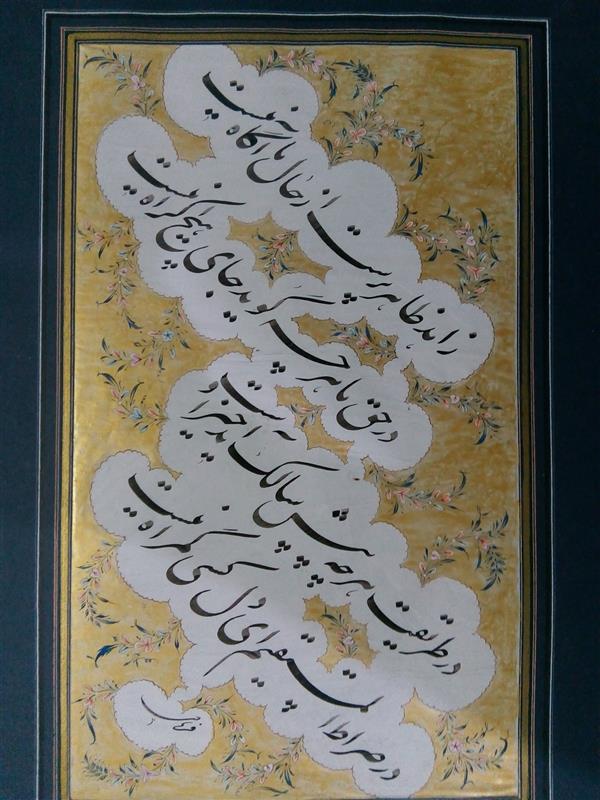 زاهد ظاهرپرست از حال ما آگاه نیست
در حق ما هر چه گوید جای هیچ اکراه نیست
در طریقت هر چه پیش سالک آید خیر اوست
در صراط المستقیم ای دل کسی گمراه نیست